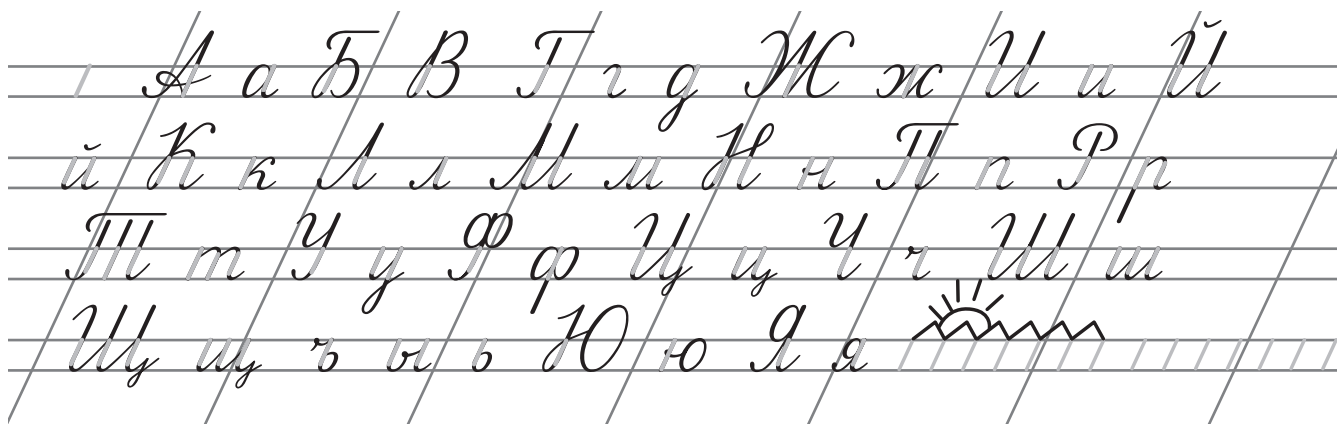 А а Б В Г г д Ж ж И и Й
й К к Л л М м Н н П п Р р
Т т У у Ф ф Ц ц Ч ч Ш ш
Щ щ ъ ы ь Ю ю Я я